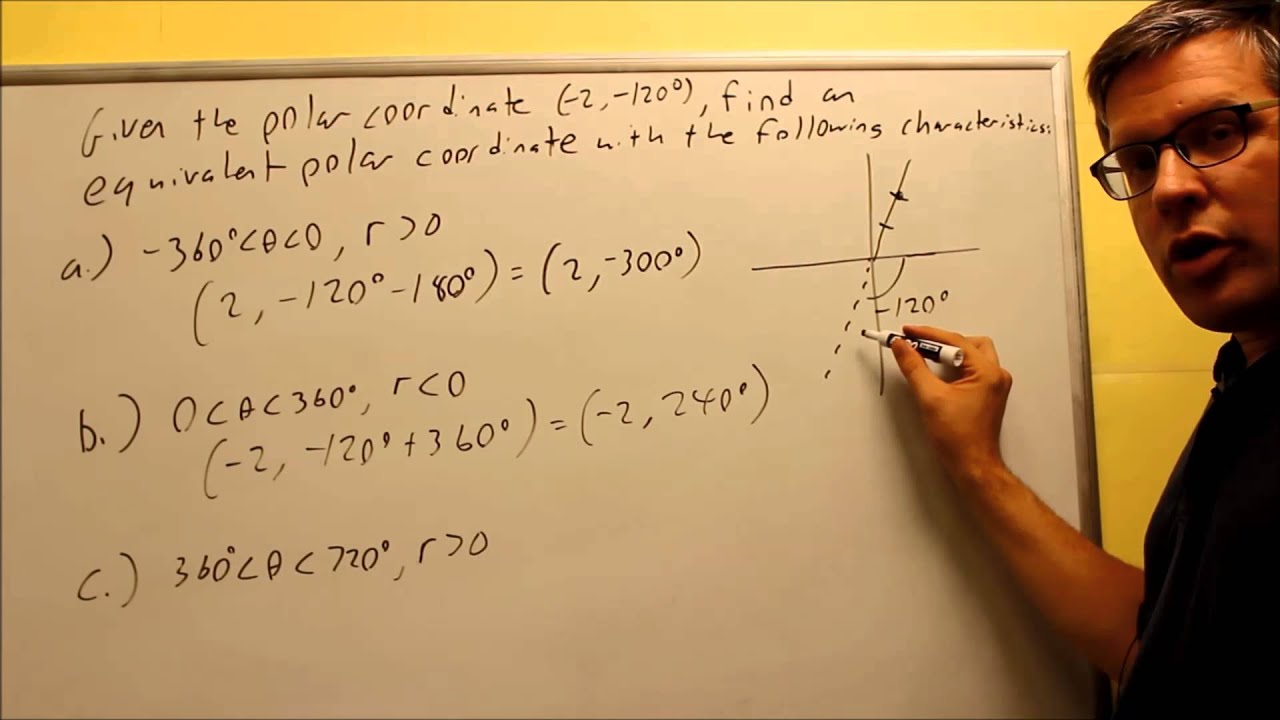 Given the polar coordinate (-2,-120°), find an
equivalent polar coordinate with the following characteristics:
a.) -360°<θ<0, r>0
(2, -120°-180°) = (2,-300°)
-120°
b.) 0<θ<360°, r<0
(-2, -120°+360°) = (-2, 240°)
c.) 360°<θ<720°, r>0